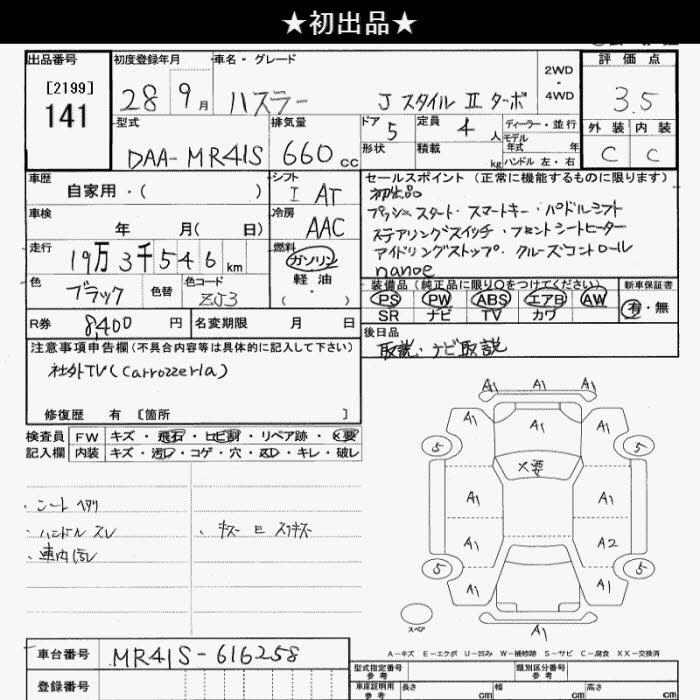 ★初出品★
出品番号 初度登録年月 車名・グレード 2WD・4WD 評価点
[2199]
141
28 9月 ハスラー JスタイルⅡターボ 3.5
型式 排気量 ドア 定員 ディーラー・並行 外装 内装
モデル年式 年
DAA-MR41S 660cc 5 4人 C C
形状 積載 kg ハンドル 左・右
車歴 シフト セールスポイント(正常に機能するものに限ります)
自家用・( ) I AT 初出品
車検 冷房 プッシュスタート・スマートキー・パドルシフト
年 月( 日) AAC ステアリングスイッチ・フロントシートヒーター
走行 燃料 アイドリングストップ・クルーズコントロール
19万3千546km ガソリン nanoe
軽油
・
( )
色 色替 色コード 装備品(純正品に限り○をつけてください) 新車保証書
ブラック ZJ3 PS PW ABS エアB AW 有・無
SR ナビ TV カワ
R券 8,400円 名変期限 月 日 後日品
取説・ナビ取説
注意事項申告欄(不具合内容等は具体的に記入して下さい)
社外TV(carrozzeria)
修復歴 有 [箇所 ]
検査員 FW キズ・飛石・ヒビ割・リペア跡・X要
記入欄 内装 キズ・汚レ・コゲ・穴・スレ・キレ・破レ
・シートヘタリ
・ハンドルスレ ・キズ E スリキズ
・車内汚レ
A1 A1 A1
A1 A1 A1
5 5
X要
A1 A1
A1 A2
5 5
A1 A1 A1
A1
スペア
A-キズ E-エクボ U-凹み W-補修跡 S-サビ C-腐食 XX-交換済
車台番号 MR41S-616258
登録番号
型式指定番号 参考 類別区分番号 参考
車庫証明用 参考 長さ cm 幅 cm 高さ cm